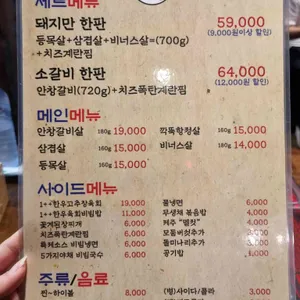 세트메뉴
돼지만 한판 59,000
(9,000원이상 할인)
등목살+삼겹살+비너스살=(700g)
+치즈계란찜
소갈비 한판 64,000
(12,000원 할인)
안창갈비(720g)+치즈폭탄계란찜
메인메뉴
안창갈비살 180g 19,000
삼겹살 160g 15,000
등목살 160g 15,000
깍뚝항정살 160g 15,000
비너스살 160g 14,000
사이드메뉴
1++한우고추장육회 19,000
1++한우육회비빔밥 11,000
꽃게된장찌개 6,000
치즈폭탄계란찜 6,000
비빔냉면 6,000
5가지야채 비빔국수 6,000
물냉면 6,000
무생채 볶음밥 4,000
제주 4,000
모듬버섯추가 3,000
돌미나리추가 3,000
공기밥 1,000
주류/음료
찐~하이볼 8,000
(병)사이다/콜라 3,000